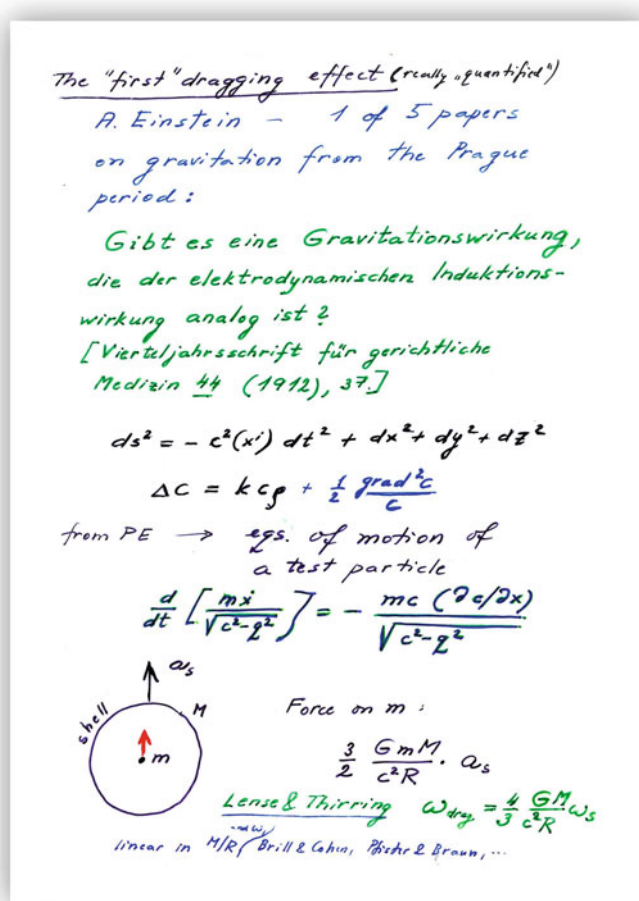 The "first" dragging effect (really „quantified")
A. Einstein – 1 of 5 papers
on gravitation from the Prague
period :
Gibt es eine Gravitationswirkung,
die der elektrodynamischen Induktions-
wirkung analog ist ?
[Vierteljahrsschrift für gerichtliche
Medizin 44 (1912), 37.]
ds² = - c²(xⁱ) dt² + dx² + dy² + dz²
Δc = k c ρ + ½ grad²c / c
from PE → eqs. of motion of
a test particle
d/dt [ mẋ / √(c²-q²) ] = - mc (∂c/∂x) / √(c²-q²)
a_s
shell
M
m
Force on m :
3/2 GmM/c²R · a_s
Lense & Thirring ω_drag = 4/3 GM/c²R ω_s
and ω,
linear in M/R, Brill & Cohen, Pfister & Braun, ...